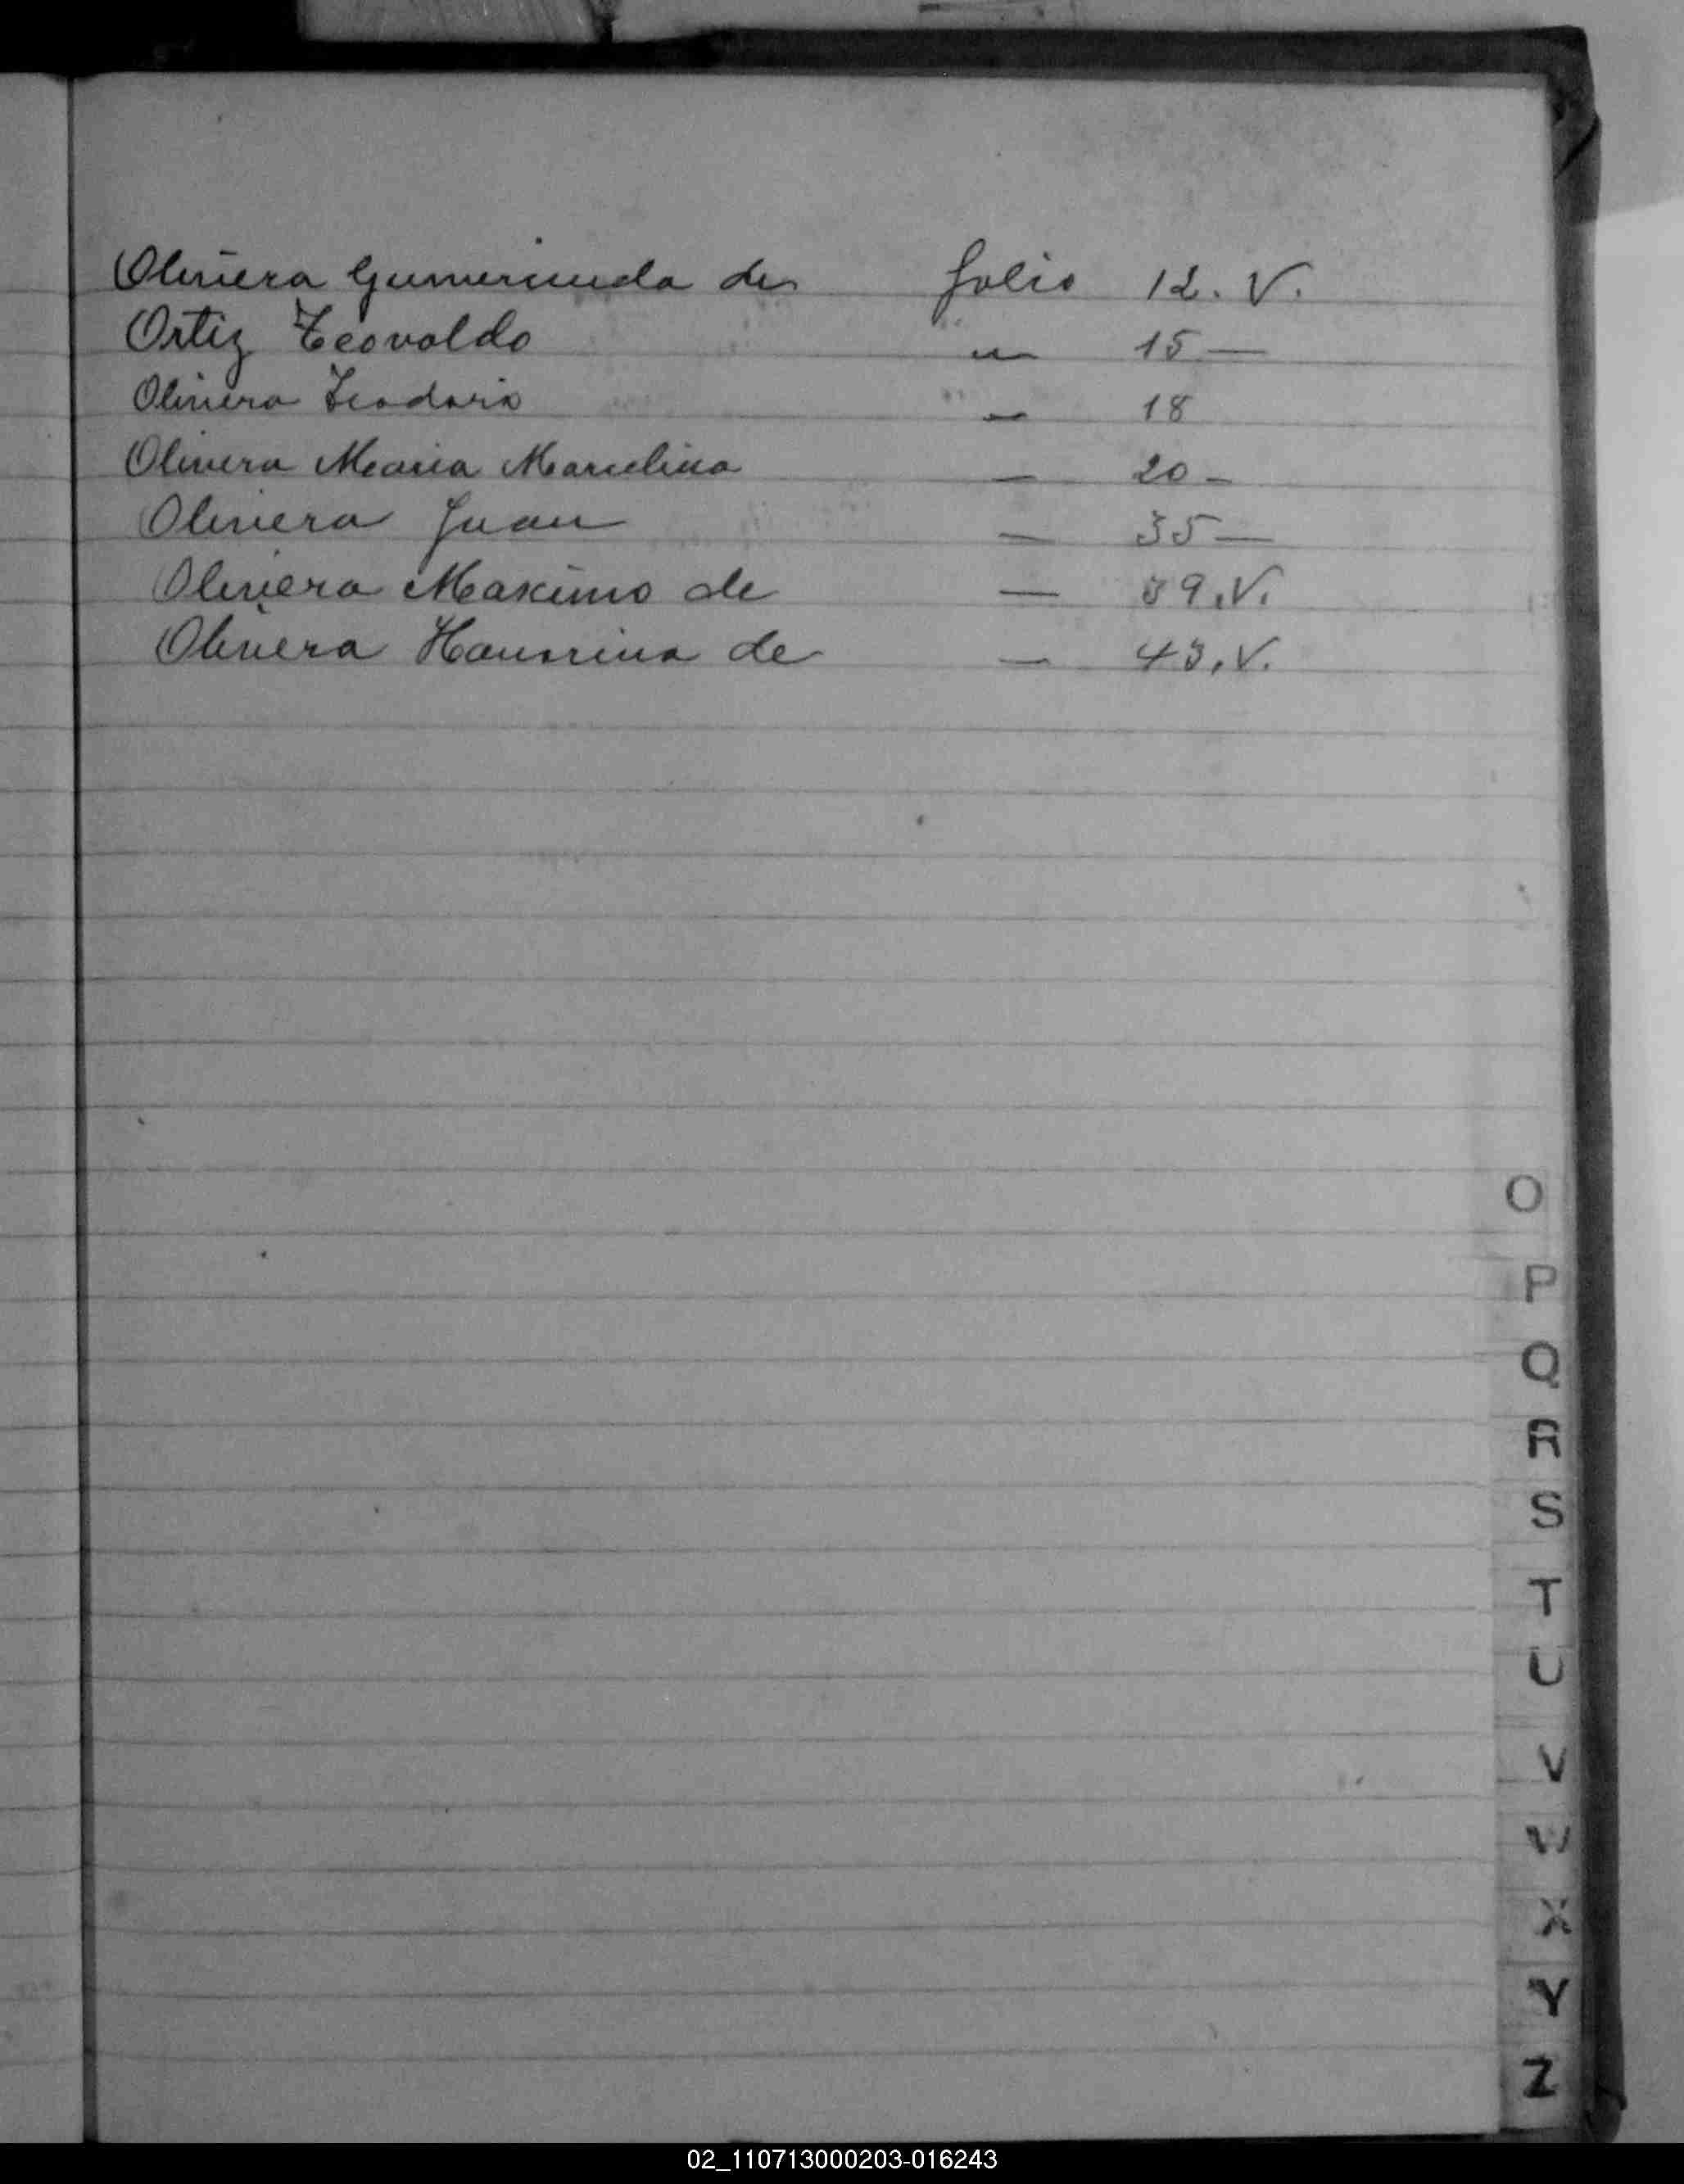 Olivera Gumercinda de folio 12. V.
Ortiz Teovaldo " 15 —
Olivera Teodora — 18
Olivera Maria Marcelina — 20 —
Olivera Juan — 35 —
Olivera Maximo de — 39. V.
Olivera de — 43. V.
O
P
Q
R
S
T
U
V
W
X
Y
Z
02_110713000203-016243